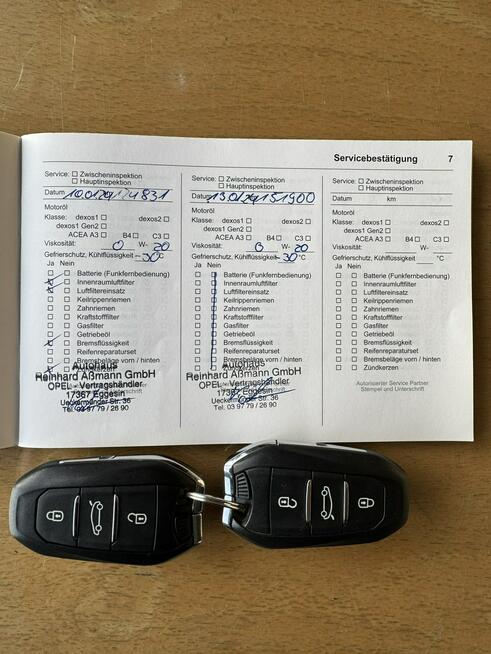 Servicebestätigung 7
Service: Zwischeninspektion
Hauptinspektion
Datum
Motoröl
Klasse: dexos1 dexos2
dexos1 Gen2
ACEA A3 B4 C3
Viskosität: 0 W- 20
Gefrierschutz, Kühlflüssigkeit -30 °C
Ja Nein
Batterie (Funkfernbedienung)
Innenraumluftfilter
Luftfiltereinsatz
Keilrippenriemen
Zahnriemen
Kraftstofffilter
Gasfilter
Getriebeöl
Bremsflüssigkeit
Reifenreparaturset
Bremsbeläge vorn / hinten
Autohaus
Reinhard Aßmann GmbH
OPEL - Vertragshändler
17367 Eggesin
Ueckermünder Str. 36
Tel. 03 97 79 / 26 90
Service: Zwischeninspektion
Hauptinspektion
Datum 51900
Motoröl
Klasse: dexos1 dexos2
dexos1 Gen2
ACEA A3 B4 C3
Viskosität: 0 W- 20
Gefrierschutz, Kühlflüssigkeit -30 °C
Ja Nein
Batterie (Funkfernbedienung)
Innenraumluftfilter
Luftfiltereinsatz
Keilrippenriemen
Zahnriemen
Kraftstofffilter
Gasfilter
Getriebeöl
Bremsflüssigkeit
Reifenreparaturset
Bremsbeläge vorn / hinten
Autohaus
Reinhard Aßmann GmbH
OPEL - Vertragshändler
17367 Eggesin
Ueckermünder Str. 36
Tel. 03 97 79 / 26 90
Service: Zwischeninspektion
Hauptinspektion
Datum km
Motoröl
Klasse: dexos1 dexos2
dexos1 Gen2
ACEA A3 B4 C3
Viskosität: W-
Gefrierschutz, Kühlflüssigkeit °C
Ja Nein
Batterie (Funkfernbedienung)
Innenraumluftfilter
Luftfiltereinsatz
Keilrippenriemen
Zahnriemen
Kraftstofffilter
Gasfilter
Getriebeöl
Bremsflüssigkeit
Reifenreparaturset
Bremsbeläge vorn / hinten
Zündkerzen
Autorisierter Service Partner
Stempel und Unterschrift